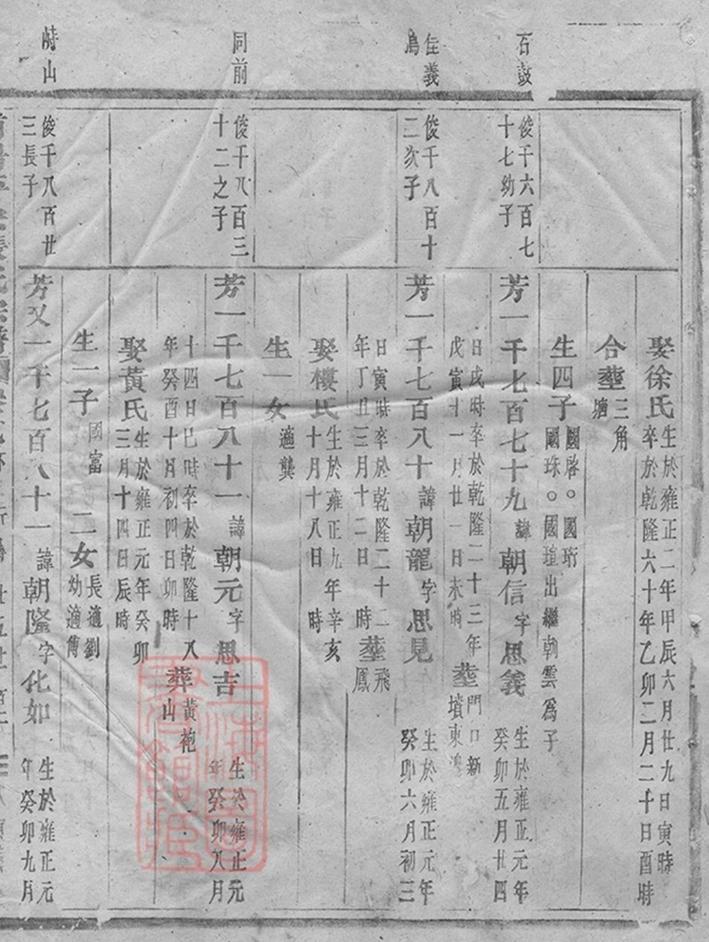 娶徐氏
生於雍正二年甲辰六月廿九日寅時
卒於乾隆六十年乙卯二月二十日酉時
合葬
三角
塘
生四子
國啓○國珩
國珠○國瑄出繼朝雲爲子
石鼓
俊千六百七
十七幼子
芳一千七百七十九
諱
朝信
字
思義
生於雍正元年
癸卯五月廿四
日戌時卒於乾隆二十三年
戊寅十一月廿一日未時
葬
門口新
墳東
住義
烏
俊千八百十
二次子
芳一千七百八十
諱
朝龍
字
思見
生於雍正元年
癸卯六月初三
日寅時卒於乾隆二十二
年丁丑三月十二日時
葬
飛
鳳
娶樓氏
生於雍正九年辛亥
十月十八日時
生一女
適龔
同前
俊千八百三
十二之子
芳一千七百八十一
諱
朝元
字
思吉
生於雍正元
年癸卯八月
十四日巳時卒於乾隆十八
年癸酉十月初四日卯時
葬
黃袍
山
娶黃氏
生於雍正元年癸卯
三月十四日辰時
生一子
國富
二女
長適劉
幼適傅
時山
俊千八百廿
三長子
芳又一千七百八十一
諱
朝隆
字
化如
生於雍正元
年癸卯九月